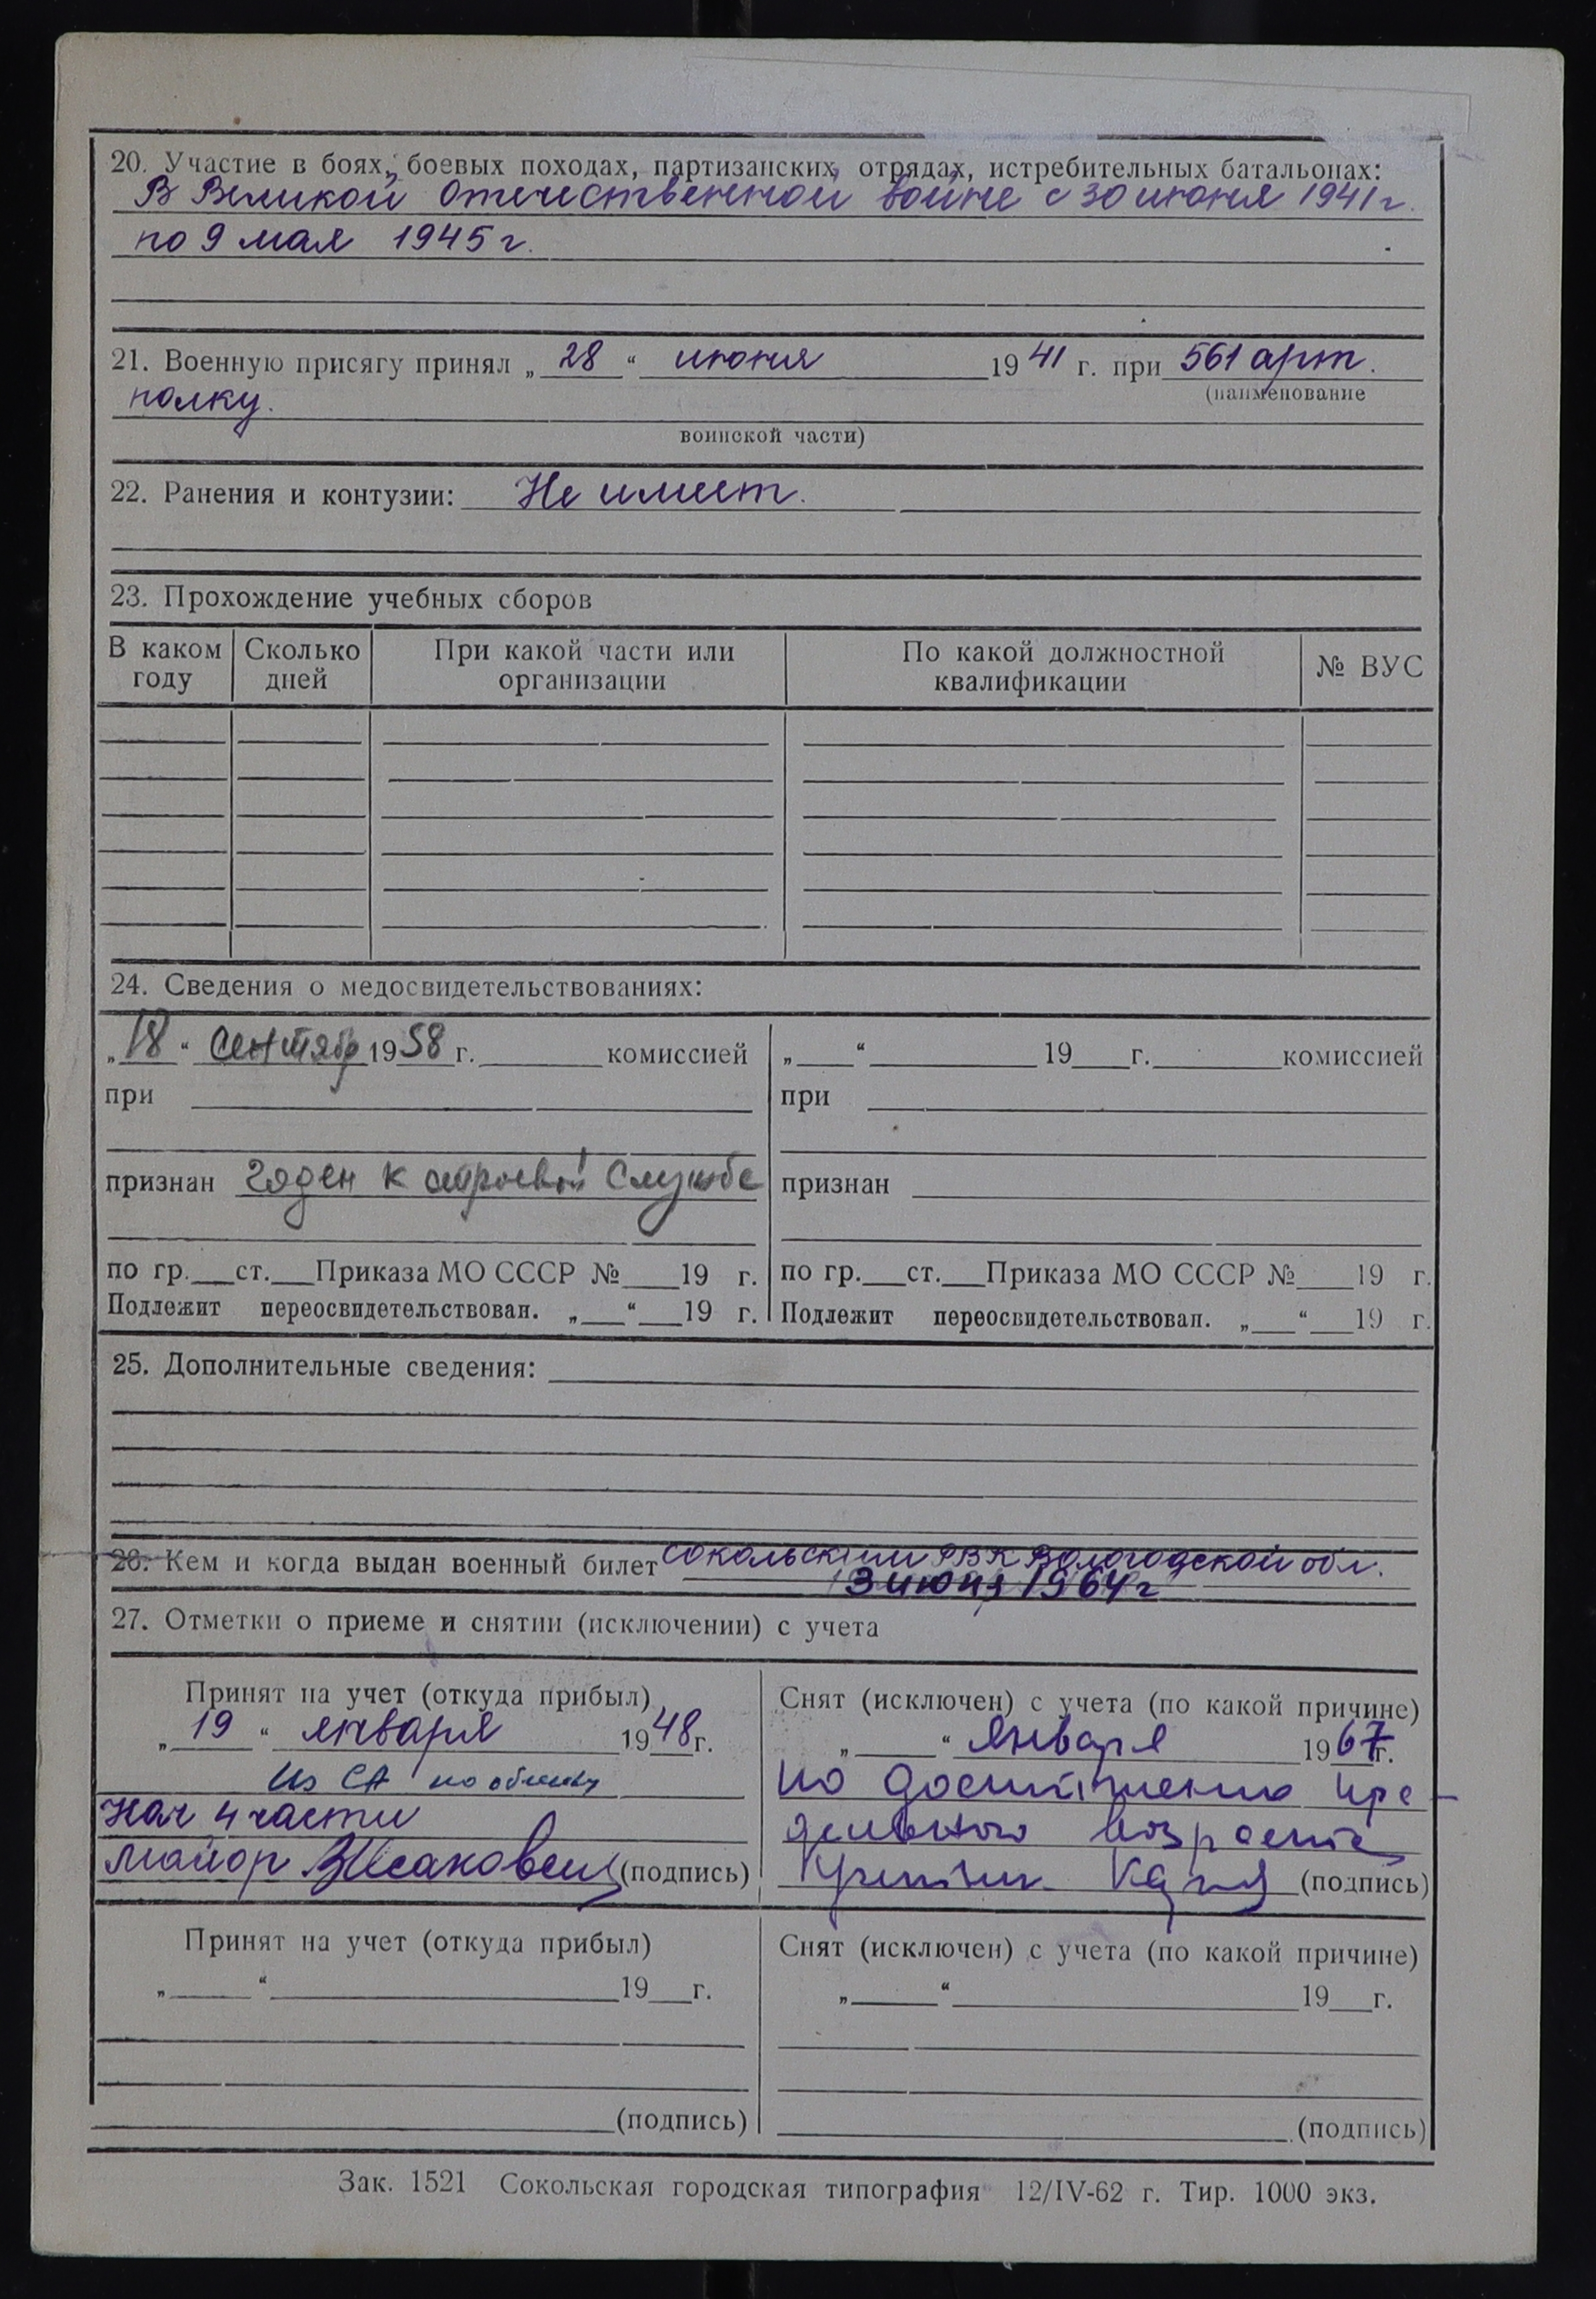 20. Участие в боях, боевых походах, партизанских отрядах, истребительных батальонах:
В Великой Отечественной войне с 30 июня 1941 г.
по 9 мая 1945 г.
21. Военную присягу принял „ 28 “ июня 19 41 г. при 561 арт.
(наименование
полку.
воинской части)
22. Ранения и контузии: Не имеет.
23. Прохождение учебных сборов
В каком году Сколько дней При какой части или организации По какой должностной квалификации № ВУС
24. Сведения о медосвидетельствованиях:
„ 18 “ сентябр 19 58 г. комиссией
при
признан годен к строевой службе
по гр. ст. Приказа МО СССР № 19 г.
Подлежит переосвидетельствован. „ “ 19 г.
„ “ 19 г. комиссией
при
признан
по гр. ст. Приказа МО СССР № 19 г.
Подлежит переосвидетельствован. „ “ 19 г.
25. Дополнительные сведения:
26. Кем и когда выдан военный билет Сокольским РВК Вологодской обл.
3 июня 1964 г
27. Отметки о приеме и снятии (исключении) с учета
Принят на учет (откуда прибыл)
„ 19 “ января 19 48 г.
Из СА по
Нач 4 части
майор (подпись)
Снят (исключен) с учета (по какой причине)
„ “ января 19 67 г.
по достижению пре-
дельного возраста
(подпись)
Принят на учет (откуда прибыл)
„ “ 19 г.
(подпись)
Снят (исключен) с учета (по какой причине)
„ “ 19 г.
(подпись)
Зак. 1521 Сокольская городская типография 12/IV-62 г. Тир. 1000 экз.